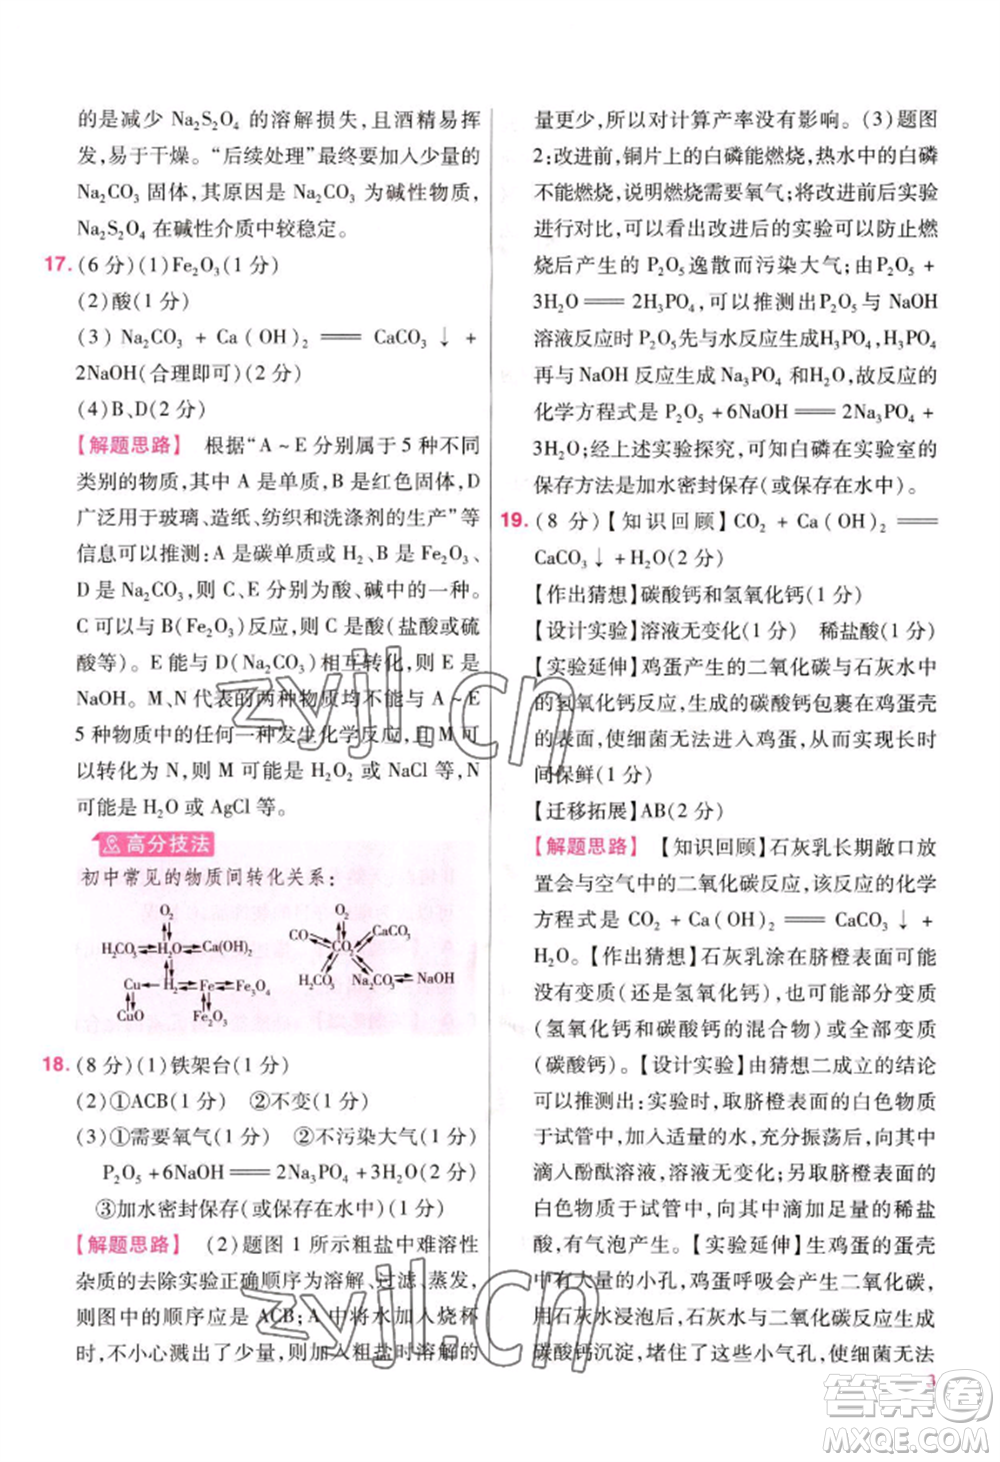 的是减少 Na₂S₂O₄ 的溶解损失,且酒精易挥
发,易于干燥。“后续处理”最终要加入少量的
Na₂CO₃ 固体,其原因是 Na₂CO₃ 为碱性物质,
Na₂S₂O₄ 在碱性介质中较稳定。
17. (6 分)(1)Fe₂O₃(1 分)
(2)酸(1 分)
(3) Na₂CO₃ + Ca(OH)₂ ══ CaCO₃↓ +
2NaOH(合理即可)(2 分)
(4)B、D(2 分)
【解题思路】 根据“A～E 分别属于 5 种不同
类别的物质,其中 A 是单质,B 是红色固体,D
广泛应用于玻璃、造纸、纺织和洗涤剂的生产”等
信息可以推测:A 是碳单质或 H₂、B 是 Fe₂O₃、
D 是 Na₂CO₃,则 C、E 分别为酸、碱中的一种。
C 可以与 B(Fe₂O₃)反应,则 C 是酸(盐酸或硫
酸等)。E 能与 D(Na₂CO₃)相互转化,则 E 是
NaOH。M、N 代表的两种物质均不能与 A～E
5 种物质中的任何一种发生化学反应,且 M 可
以转化为 N,则 M 可能是 H₂O₂ 或 NaCl 等,N
可能是 H₂O 或 AgCl 等。
高分技法
初中常见的物质间转化关系:
O₂
H₂CO₃ H₂O Ca(OH)₂
Cu H₂ Fe Fe₃O₄
CuO Fe₂O₃
O₂
CO CaCO₃
CO₂
H₂CO₃ Na₂CO₃ NaOH
18. (8 分)(1)铁架台(1 分)
(2)①ACB(1 分) ②不变(1 分)
(3)①需要氧气(1 分) ②不污染大气(1 分)
P₂O₅+6NaOH ══ 2Na₃PO₄+3H₂O(2 分)
③加水密封保存(或保存在水中)(1 分)
【解题思路】 (2)题图 1 所示粗盐中难溶性
杂质的去除实验正确顺序为溶解、过滤、蒸发,
则图中的顺序应是 ACB;A 中将水加入烧杯
时,不小心溅出了少量,则加入粗盐时溶解的
量更少,所以对计算产率没有影响。(3)题图
2:改进前,铜片上的白磷能燃烧,热水中的白磷
不能燃烧,说明燃烧需要氧气;将改进前后实验
进行对比,可以看出改进后的实验可以防止燃
烧后产生的 P₂O₅ 逸散而污染大气;由 P₂O₅ +
3H₂O ══ 2H₃PO₄,可以推测出 P₂O₅ 与 NaOH
溶液反应时 P₂O₅ 先与水反应生成 H₃PO₄,H₃PO₄
再与 NaOH 反应生成 Na₃PO₄ 和 H₂O,故反应的
化学方程式是 P₂O₅+6NaOH ══ 2Na₃PO₄ +
3H₂O;经上述实验探究,可知白磷在实验室的
保存方法是加水密封保存(或保存在水中)。
19. (8 分)【知识回顾】CO₂ + Ca(OH)₂ ══
CaCO₃↓+H₂O(2 分)
【作出猜想】碳酸钙和氢氧化钙(1 分)
【设计实验】溶液无变化(1 分) 稀盐酸(1 分)
【实验延伸】鸡蛋产生的二氧化碳与石灰水中
的氢氧化钙反应,生成的碳酸钙包裹在鸡蛋壳
的表面,使细菌无法进入鸡蛋,从而实现长时
间保鲜(1 分)
【迁移拓展】AB(2 分)
【解题思路】 【知识回顾】石灰乳长期敞口放
置会与空气中的二氧化碳反应,该反应的化学
方程式为 CO₂ + Ca(OH)₂ ══ CaCO₃↓ +
H₂O。【作出猜想】石灰乳涂在脐橙表面可能
没有变质(还是氢氧化钙)、也可能部分变质
(氢氧化钙和碳酸钙的混合物)或全部变质
(碳酸钙)。【设计实验】由猜想二成立的结论
可以推测出:实验时,取脐橙表面的白色物质
于试管中,加入适量的水,充分振荡后,向其中
滴入酚酞溶液,溶液无变化;又取脐橙表面的
白色物质于试管中,向其中滴加足量的稀盐
酸,有气泡产生。【实验延伸】生鸡蛋的蛋壳
中有大量的小孔,鸡蛋呼吸会产生二氧化碳,
用石灰水浸泡后,石灰水与二氧化碳反应生成
碳酸钙沉淀,堵住了这些小气孔,使细菌无法
3
zyjl.cn
zyjl.cn
答案圈
MXQE.COM